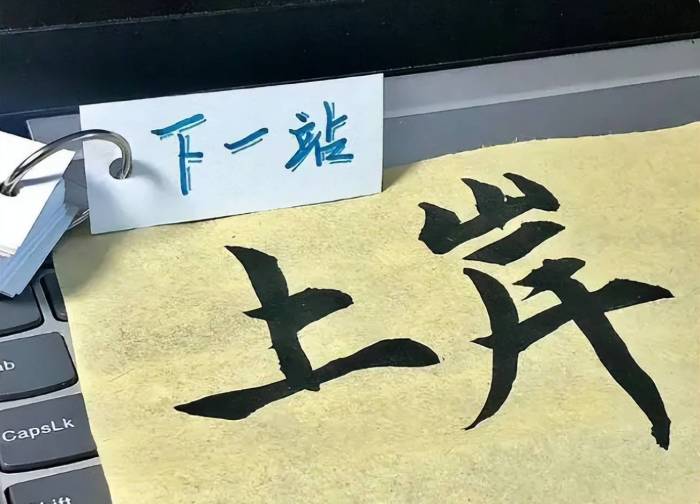 下一站
上岸
ab
CapsLk
Shift